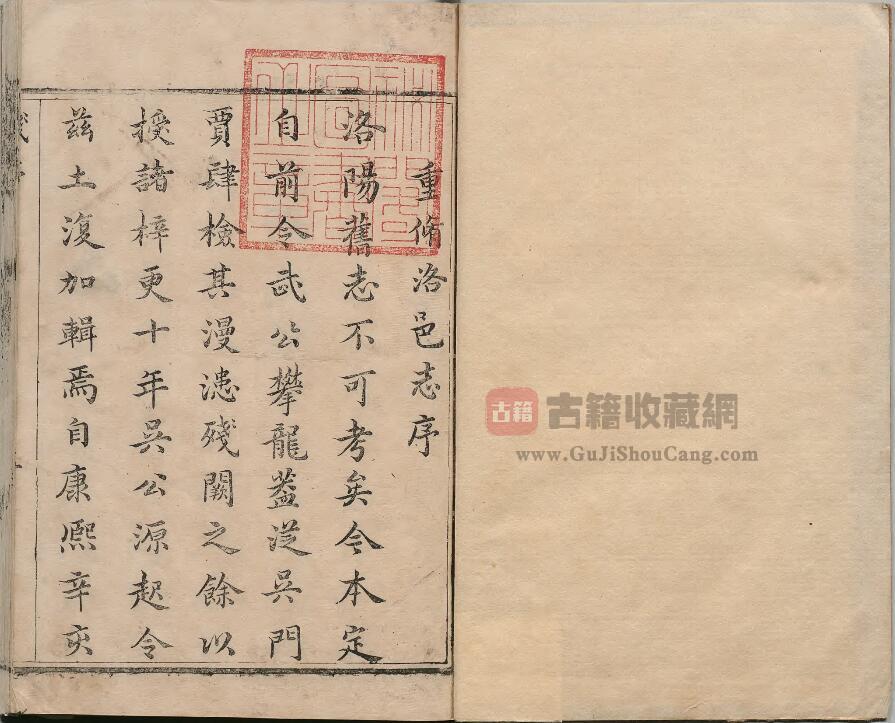 重修洛邑志序
洛陽舊志不可考矣今本定
自前令武公攀龍葢從吳門
賈肆檢其漫漶殘闕之餘以
授諸梓更十年吳公源起令
茲土復加輯焉自康熙辛亥
古籍
古籍收藏網
www.GuJiShouCang.com